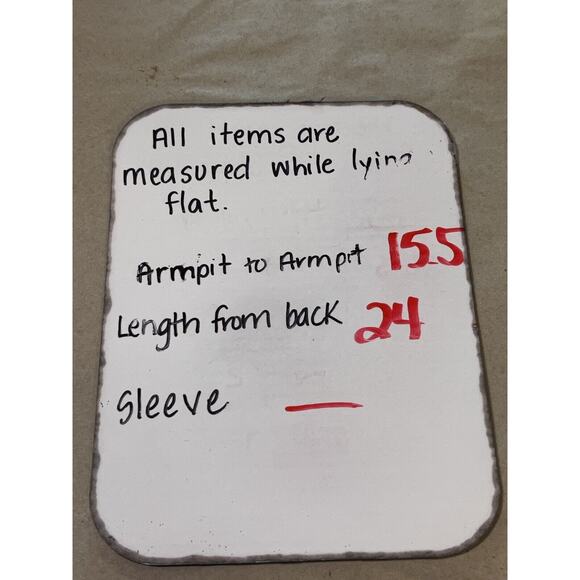 All items are
measured while lying
flat.
Armpit to Armpit 15.5
Length from back 24
Sleeve —